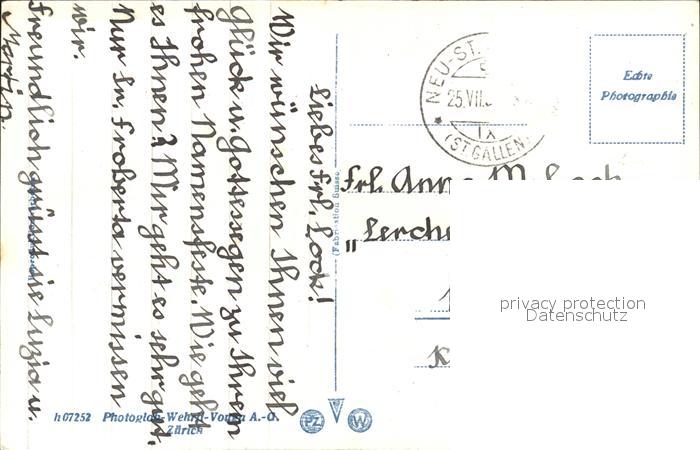 Liebes Frl. Lock!
Wir wünschen Ihnen viel
Glück u. Gottessegen zu Ihrem
frohen Namensfeste. Wie geht
es Ihnen? Mir geht es sehr gut.
Nur Sr. Froberta vermissen
wir.
Freundlich grüsst sie Luzia u.
Martin.
NEU-ST.
25.VII.
IX
(ST. GALLEN)
Echte
Photographie
Frl. Anna M. Loch
"Lerche
K
(Fabrication Suisse)
h07252 Photoglob-Wehrli-Vouga A.-G.
Zürich
PZ V W
privacy protection
Datenschutz